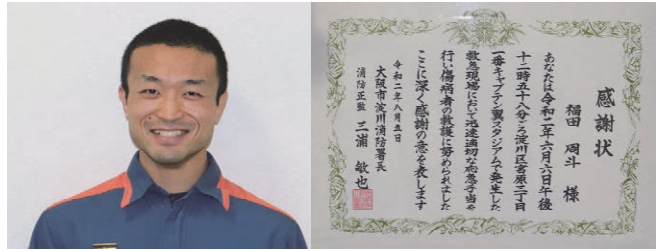 感謝状
福田 周斗 様
あなたは令和二年六月六日午後
十二時五十八分ごろ淀川区宮原二丁目
一番キャプテン翼スタジアムで発生した
救急現場において迅速適切な応急手当を
行い傷病者の救護に努められました
ここに深く感謝の意を表します
令和二年八月五日
大阪市淀川消防署長
消防正監 三浦 敏也